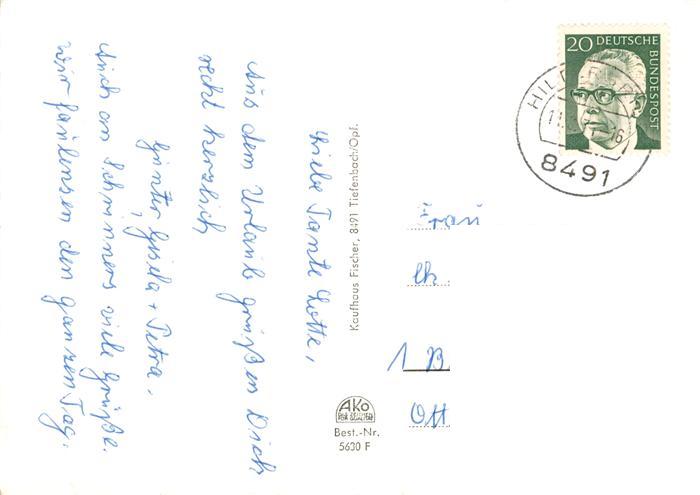 Liebe Tante Lotte,
Aus dem Urlaub grüßen Dich
recht herzlich
Günter, Gisela + Petra.
Auch an Schinners viele Grüße.
Wir faulenzen den ganzen Tag.
Kaufhaus Fischer, 8491 Tiefenbach/Opf.
AKO
Best.-Nr.
5630 F
20 DEUTSCHE
BUNDESPOST
8491
Frau
Ch.
1 B.
Ott